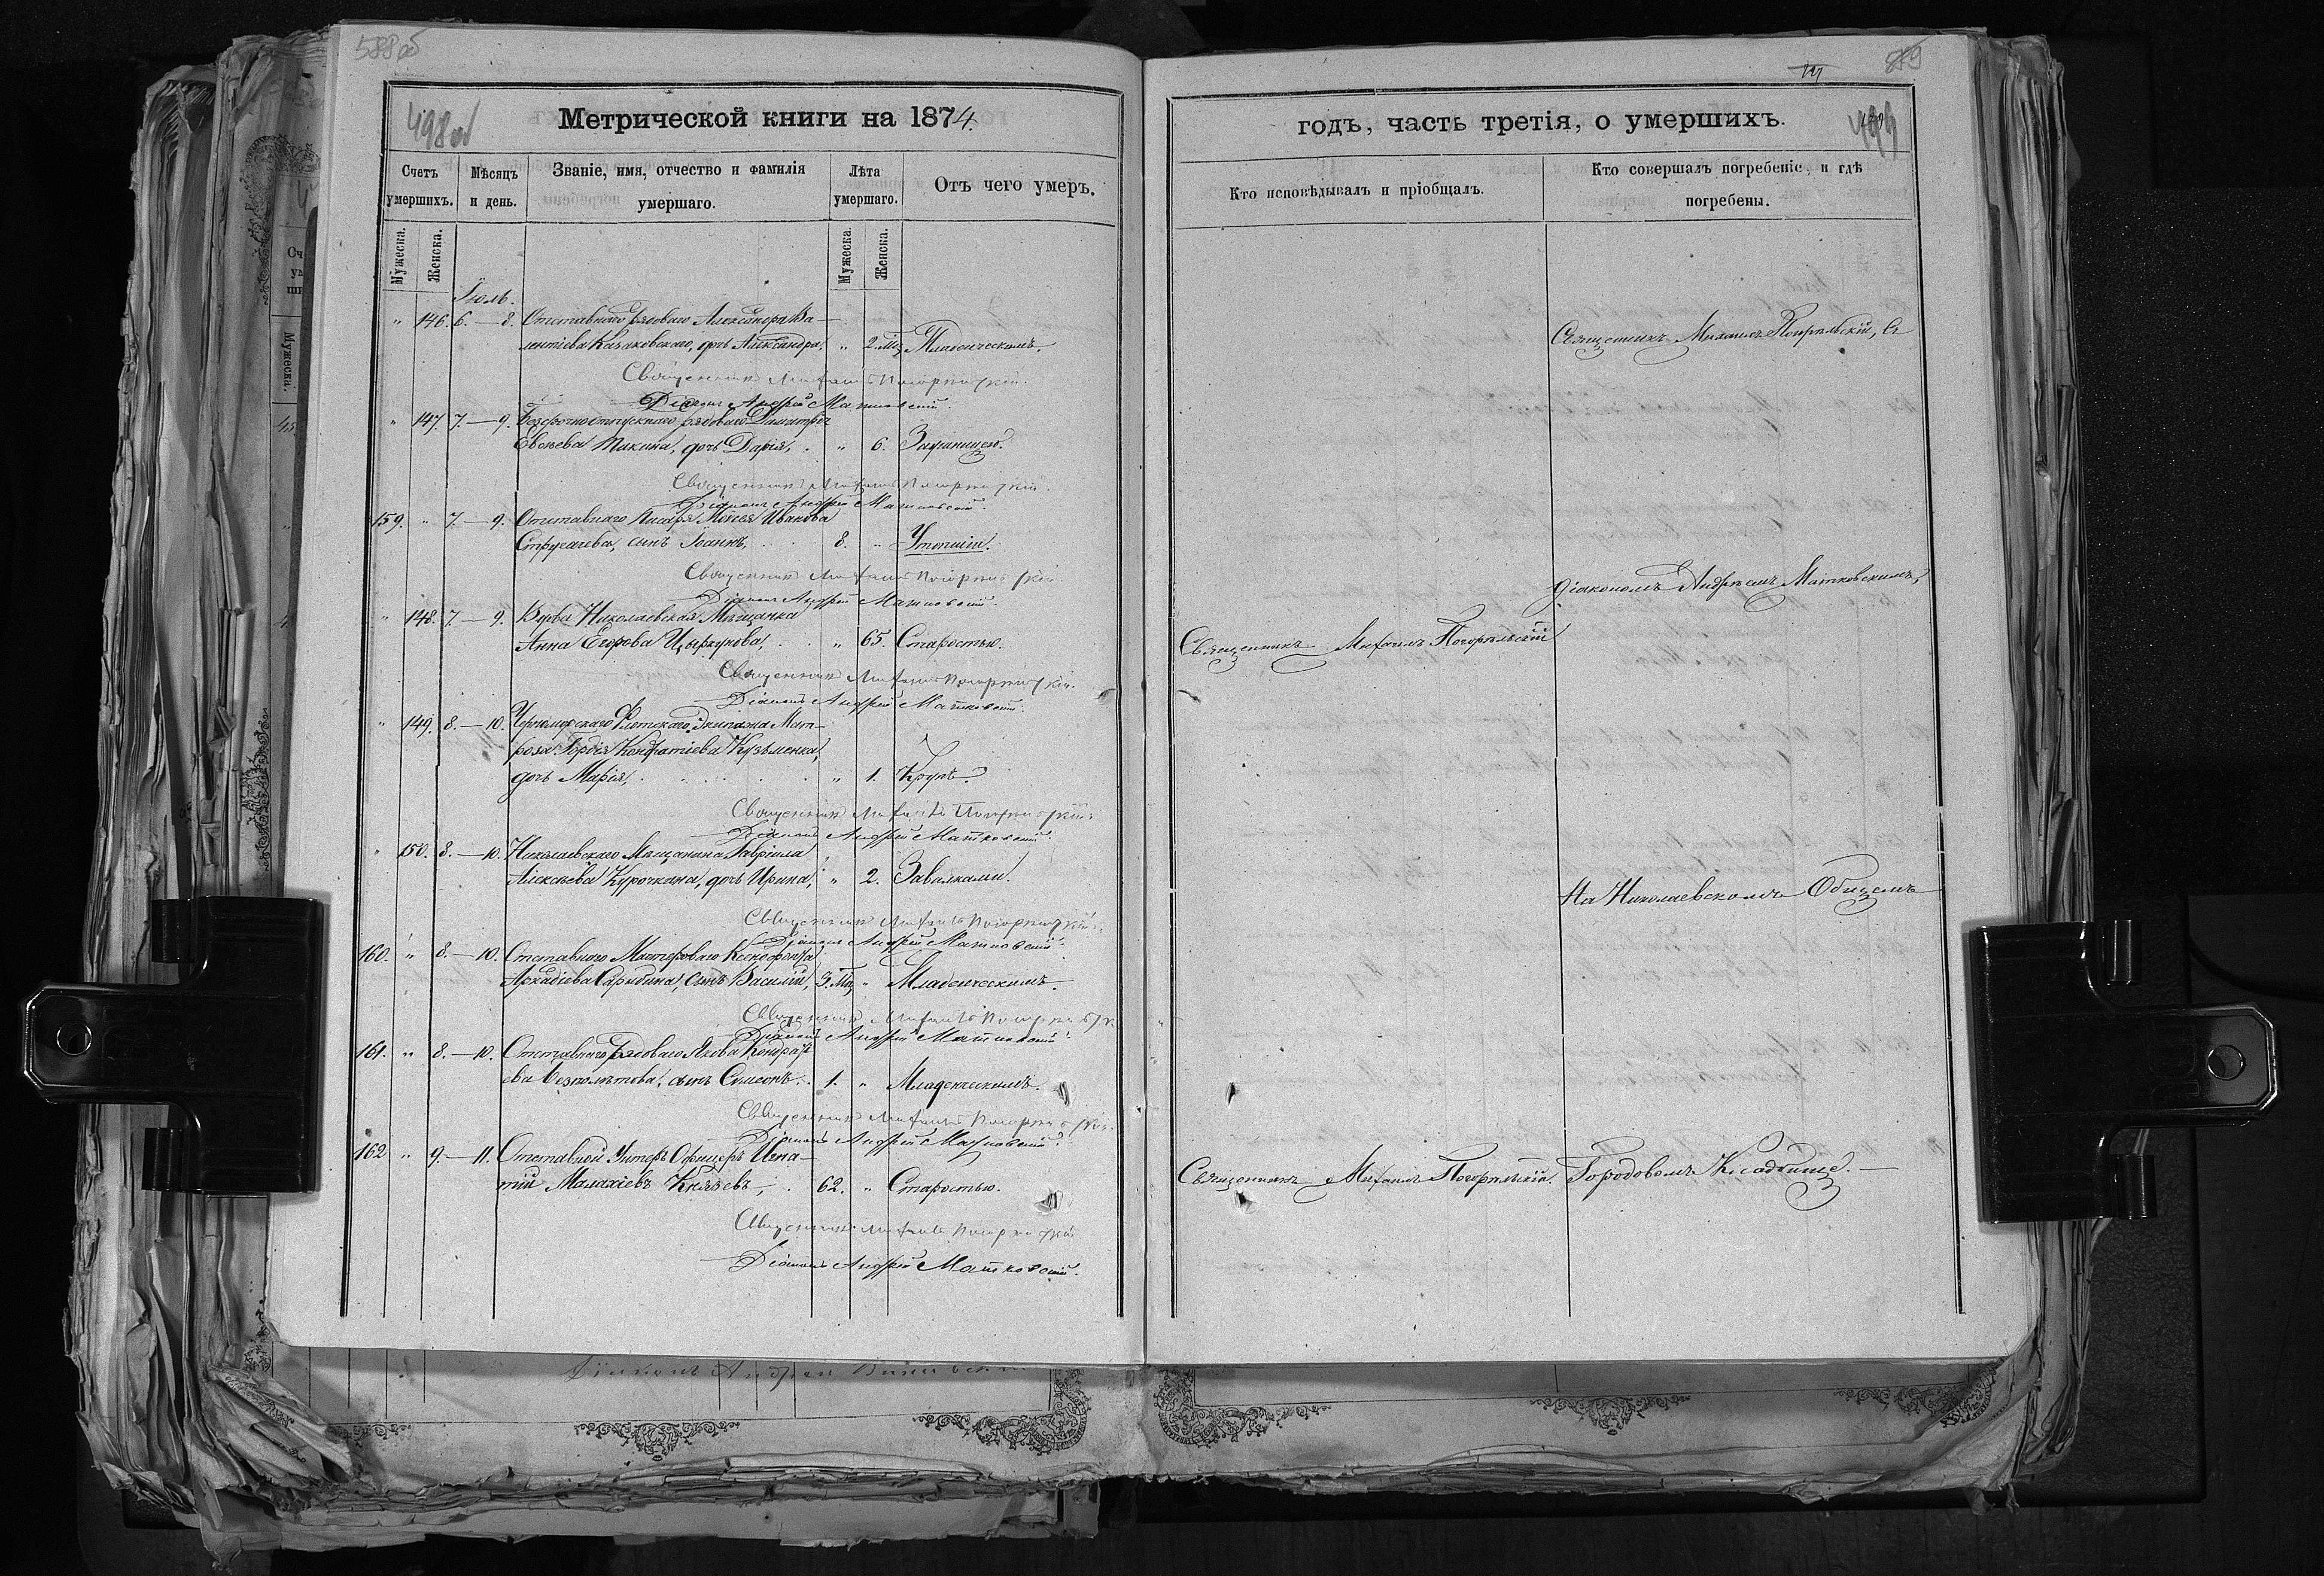 588об
498об
Метрической книги на 1874.
Счетъ умершихъ.
Мѣсяцъ и день.
Званіе, имя, отчество и фамилія умершаго.
Лѣта умершаго.
Отъ чего умеръ.
Мужеска.
Женска.
Мужеска.
Женска.
Іюль.
" 146. 6. — 8. Отставнаго рядоваго Александра Ва-
лентіева Качаковскаго, дочь Александра, " 2. мц Младенческимъ.
Священникъ Михаилъ Погорѣльскій.
Діаконъ Андрей Матковскій.
" 147. 7. — 9. Безсрочноотпускнаго рядоваго Димитрія
Евсѣева Макина, дочь Дарія, " 6.
Священникъ Михаилъ Погорѣльскій.
Діаконъ Андрей Матковскій.
159. " 7. — 9. Отставнаго Писаря Моисея Иванова
сынъ Іоаннъ, 8. " Утопшій.
Священникъ Михаилъ Погорѣльскій.
Діаконъ Андрей Матковскій.
" 148. 7. — 9. Вдова Николаевская Мѣщанка
Анна Егорова " 65. Старостью.
Священникъ Михаилъ Погорѣльскій.
Діаконъ Андрей Матковскій.
" 149. 8. — 10. Черноморскаго Флотскаго Экипажа Мат-
роза Гордія Кондратіева Кузьменка,
дочь Марія, " 1. Крупъ.
Священникъ Михаилъ Погорѣльскій.
Діаконъ Андрей Матковскій.
" 150. 8. — 10. Николаевскаго Мѣщанина Гавріила
Алексѣева Курочкина, дочь Ирина, " 2. Завалками.
Священникъ Михаилъ Погорѣльскій.
Діаконъ Андрей Матковскій.
160. " 8. — 10. Отставнаго Мастероваго Ксенофонта
Аркадіева Сарибина, сынъ Василій, 3. мц " Младенческимъ.
Священникъ Михаилъ Погорѣльскій
Діаконъ Андрей Матковскій.
161. " 8. — 10. Отставнаго рядоваго Якова Кондрать
ева сынъ Симеонъ. 1. " Младенческимъ.
Священникъ Михаилъ Погорѣльскій.
Діаконъ Андрей Матковскій.
162 " 9. — 11. Отставной Унтеръ Офицеръ Игна-
тій Малахіевъ Князевъ, 62. " Старостью.
Священникъ Михаилъ Погорѣльскій
Діаконъ Андрей Матковскій.
годъ, часть третія, о умершихъ.
Кто исповѣдывалъ и пріобщалъ.
Кто совершалъ погребеніе, и гдѣ погребены.
Священникъ Михаилъ Погорѣльскій, съ
діакономъ Андреемъ Матковскимъ,
Священникъ Михаилъ Погорѣльскій
На Николаевскомъ Общемъ
Священникъ Михаилъ Погорѣльскій.
Городовомъ Кладбище. —